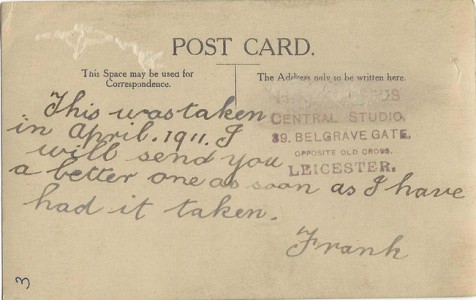 POST CARD.
This Space may be used for
Correspondence.
The Address only to be written here.
This was taken
in April. 1911. I
will send you
a better one as soon as I have
had it taken.
Frank
CENTRAL STUDIO,
39. BELGRAVE GATE,
OPPOSITE OLD CROSS,
LEICESTER.
3